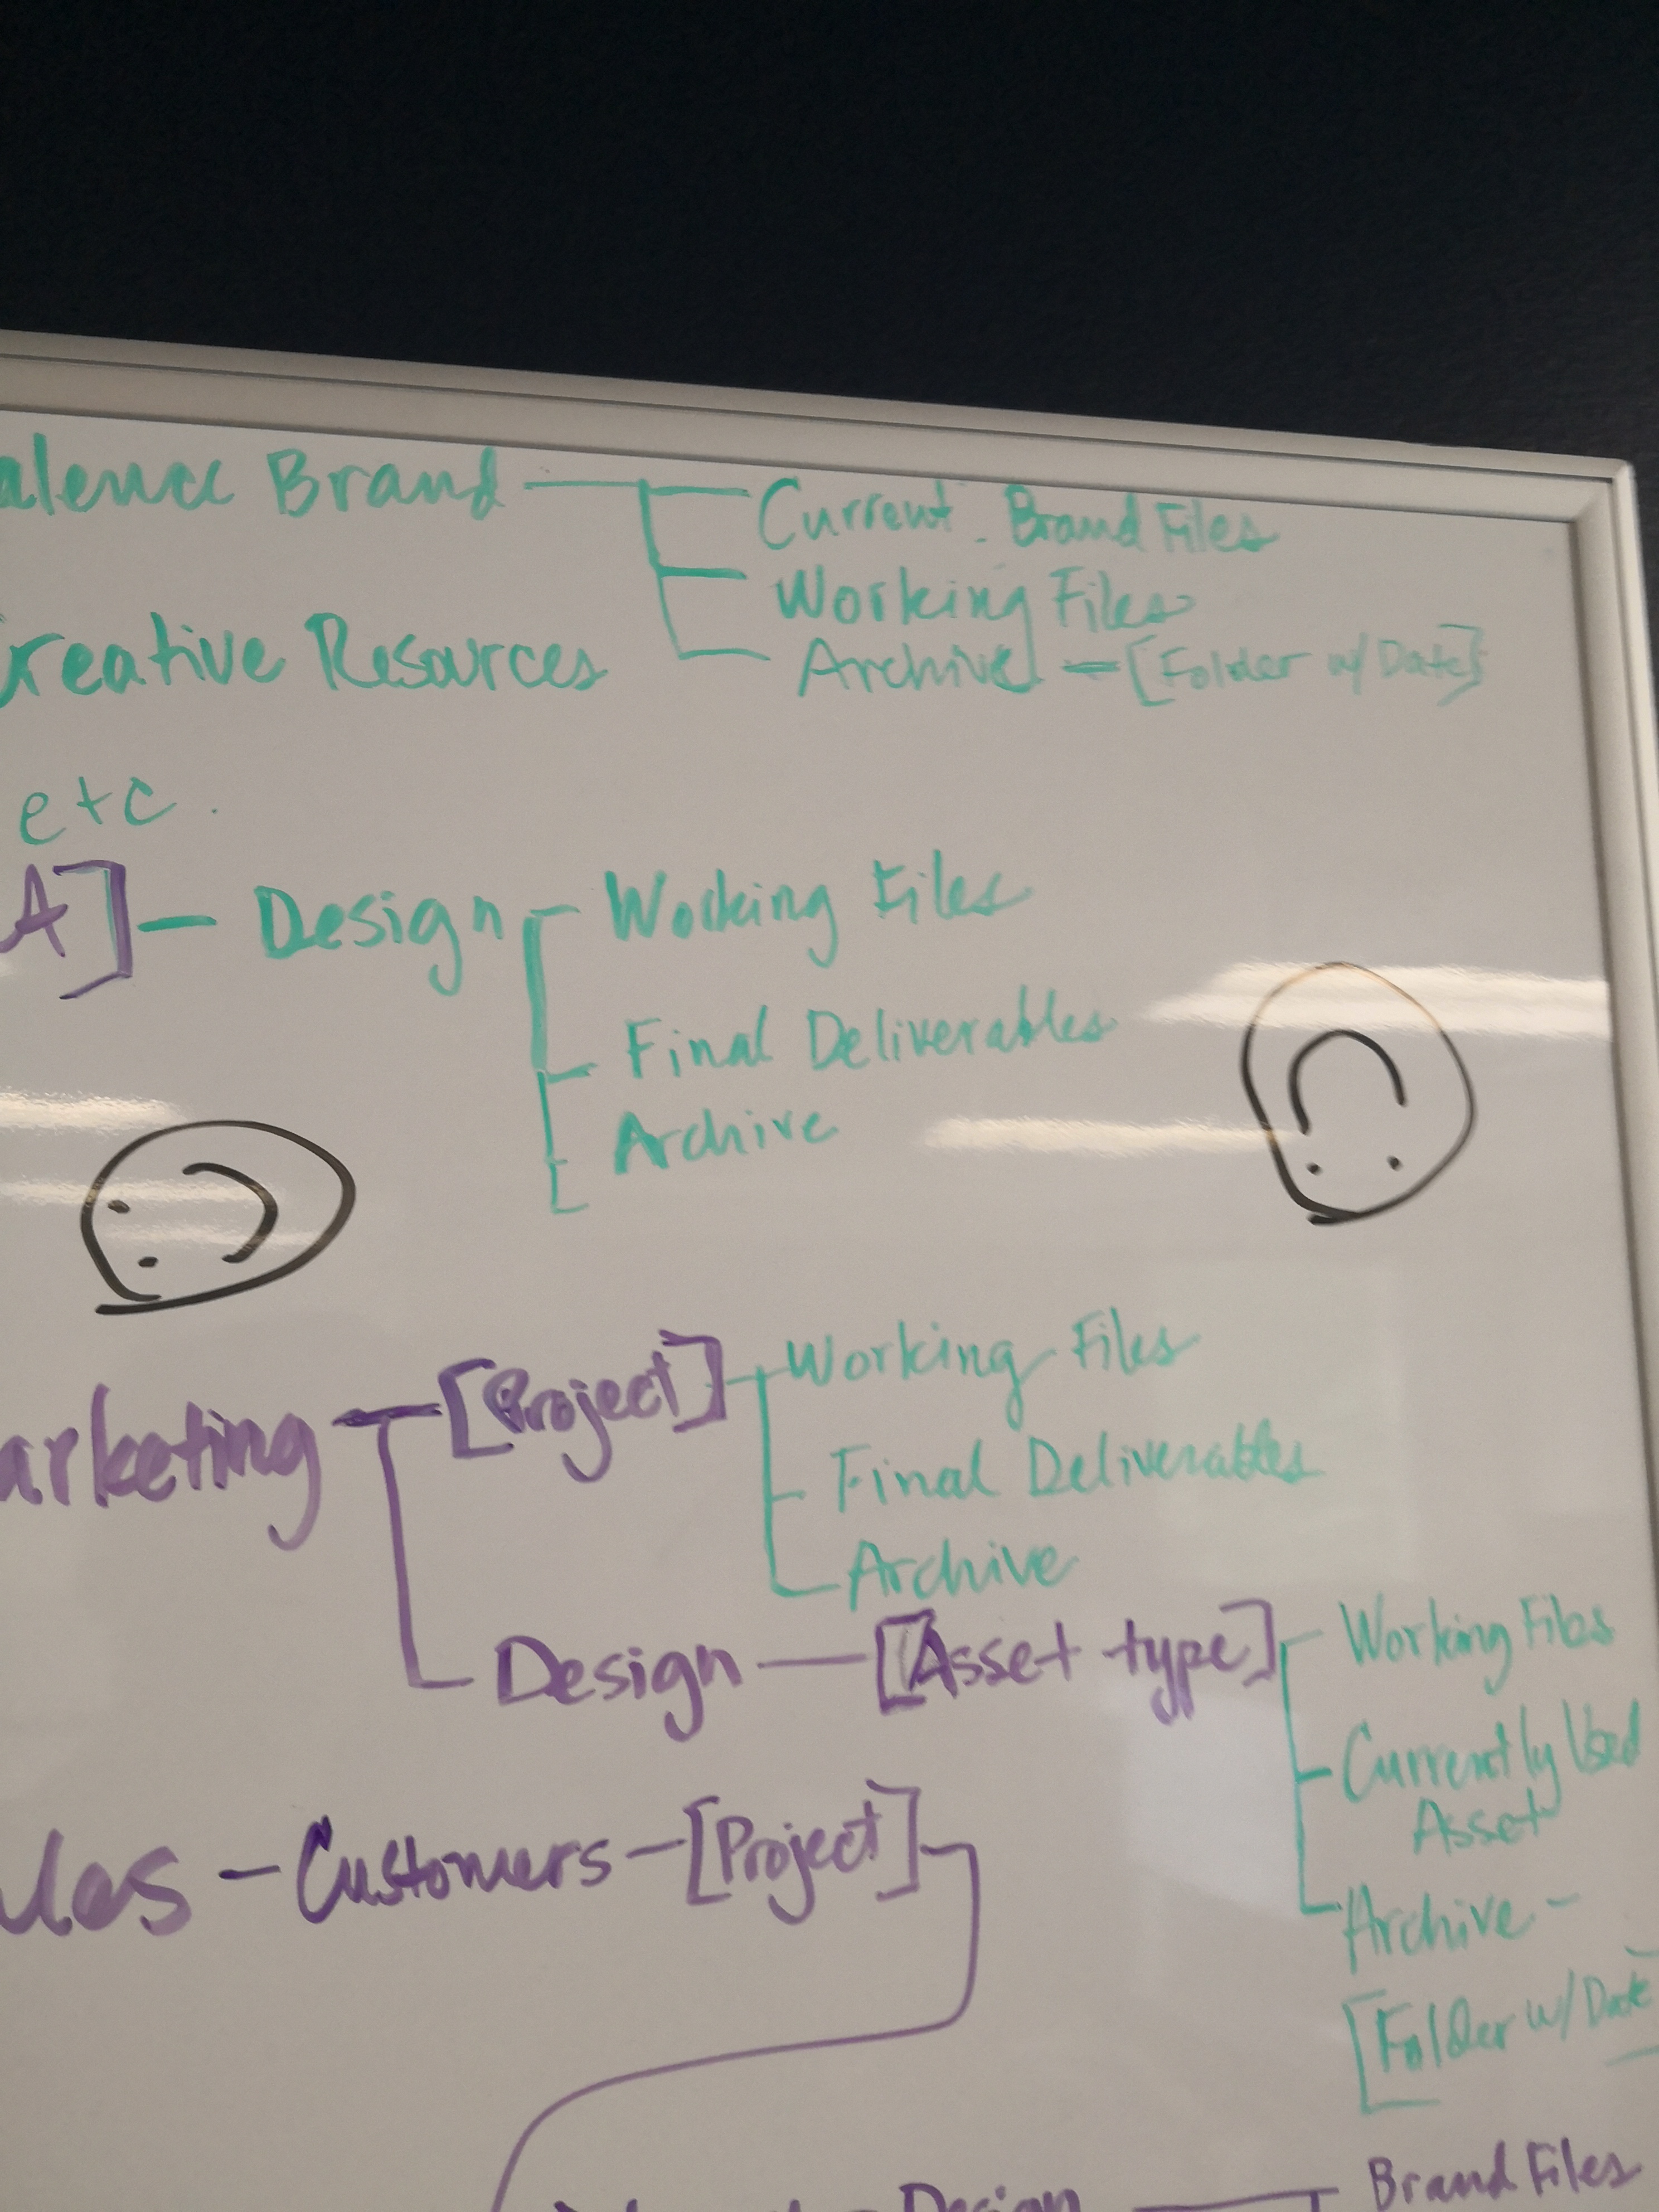 alence Brand — Current Brand Files
Working Files
reative Resources
Archive — [Folder w/ Date]
etc.
A] — Design
Working Files
Final Deliverables
Archive
arketing
[Project]
Working Files
Final Deliverables
Archive
Design — [Asset type]
Working Files
Currently Used
Asset
Archive -
[Folder w/ Date
les - Customers - [Project]
Design
Brand Files